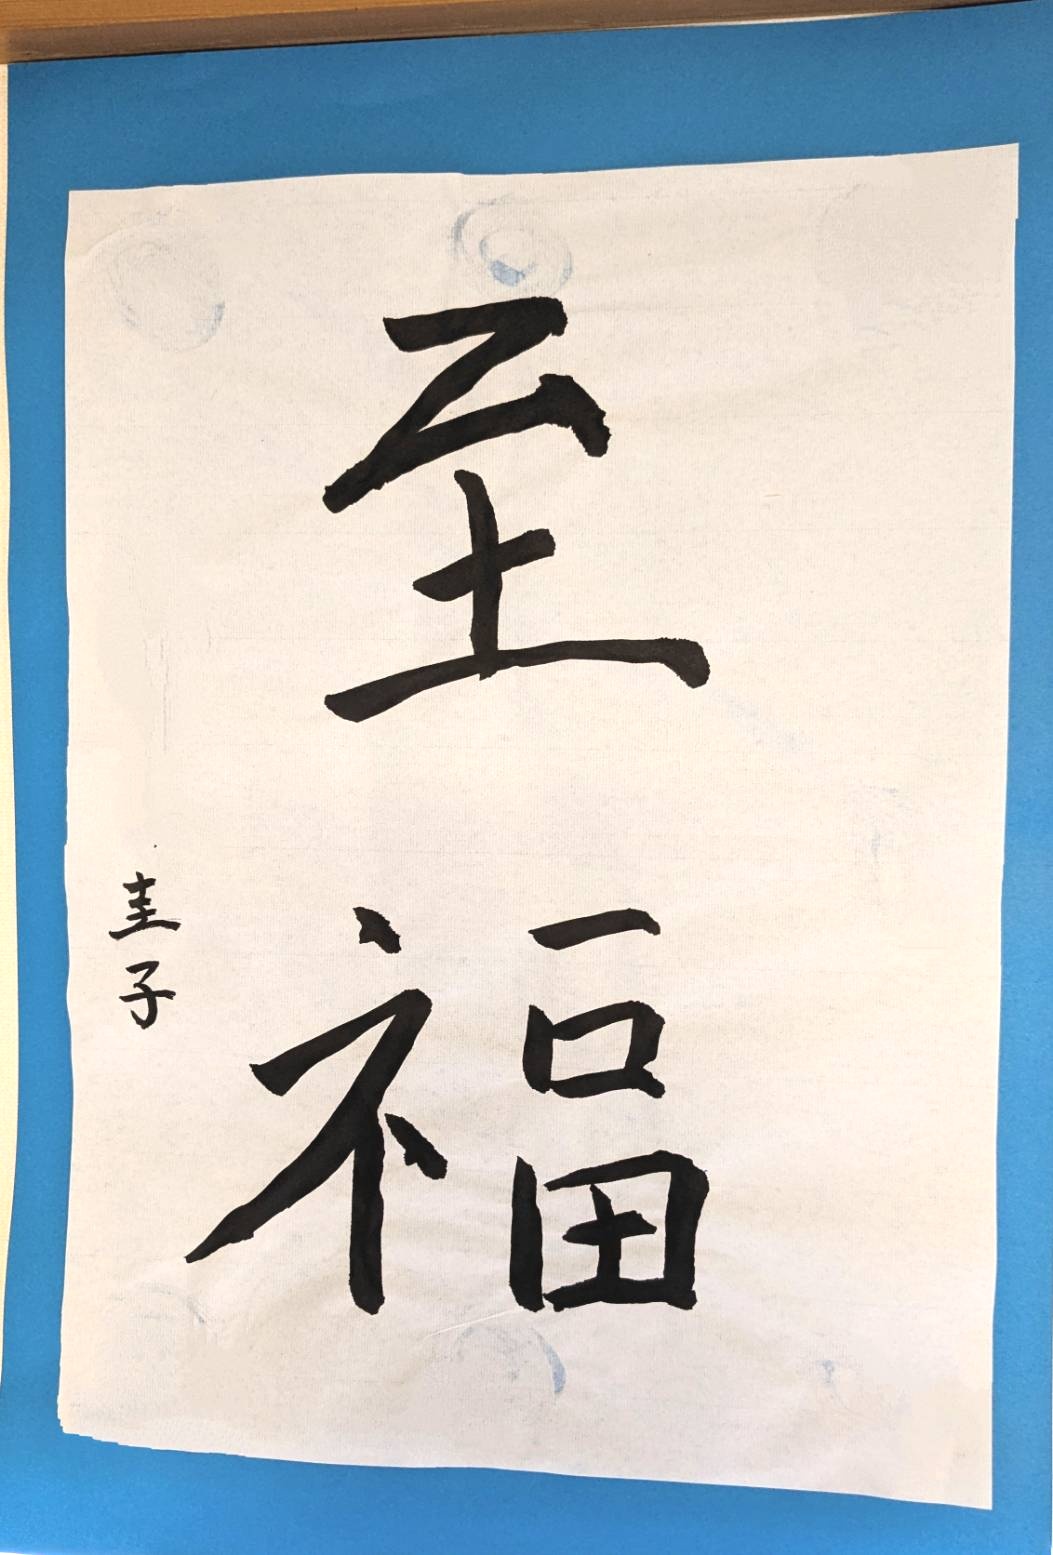 至福
圭子